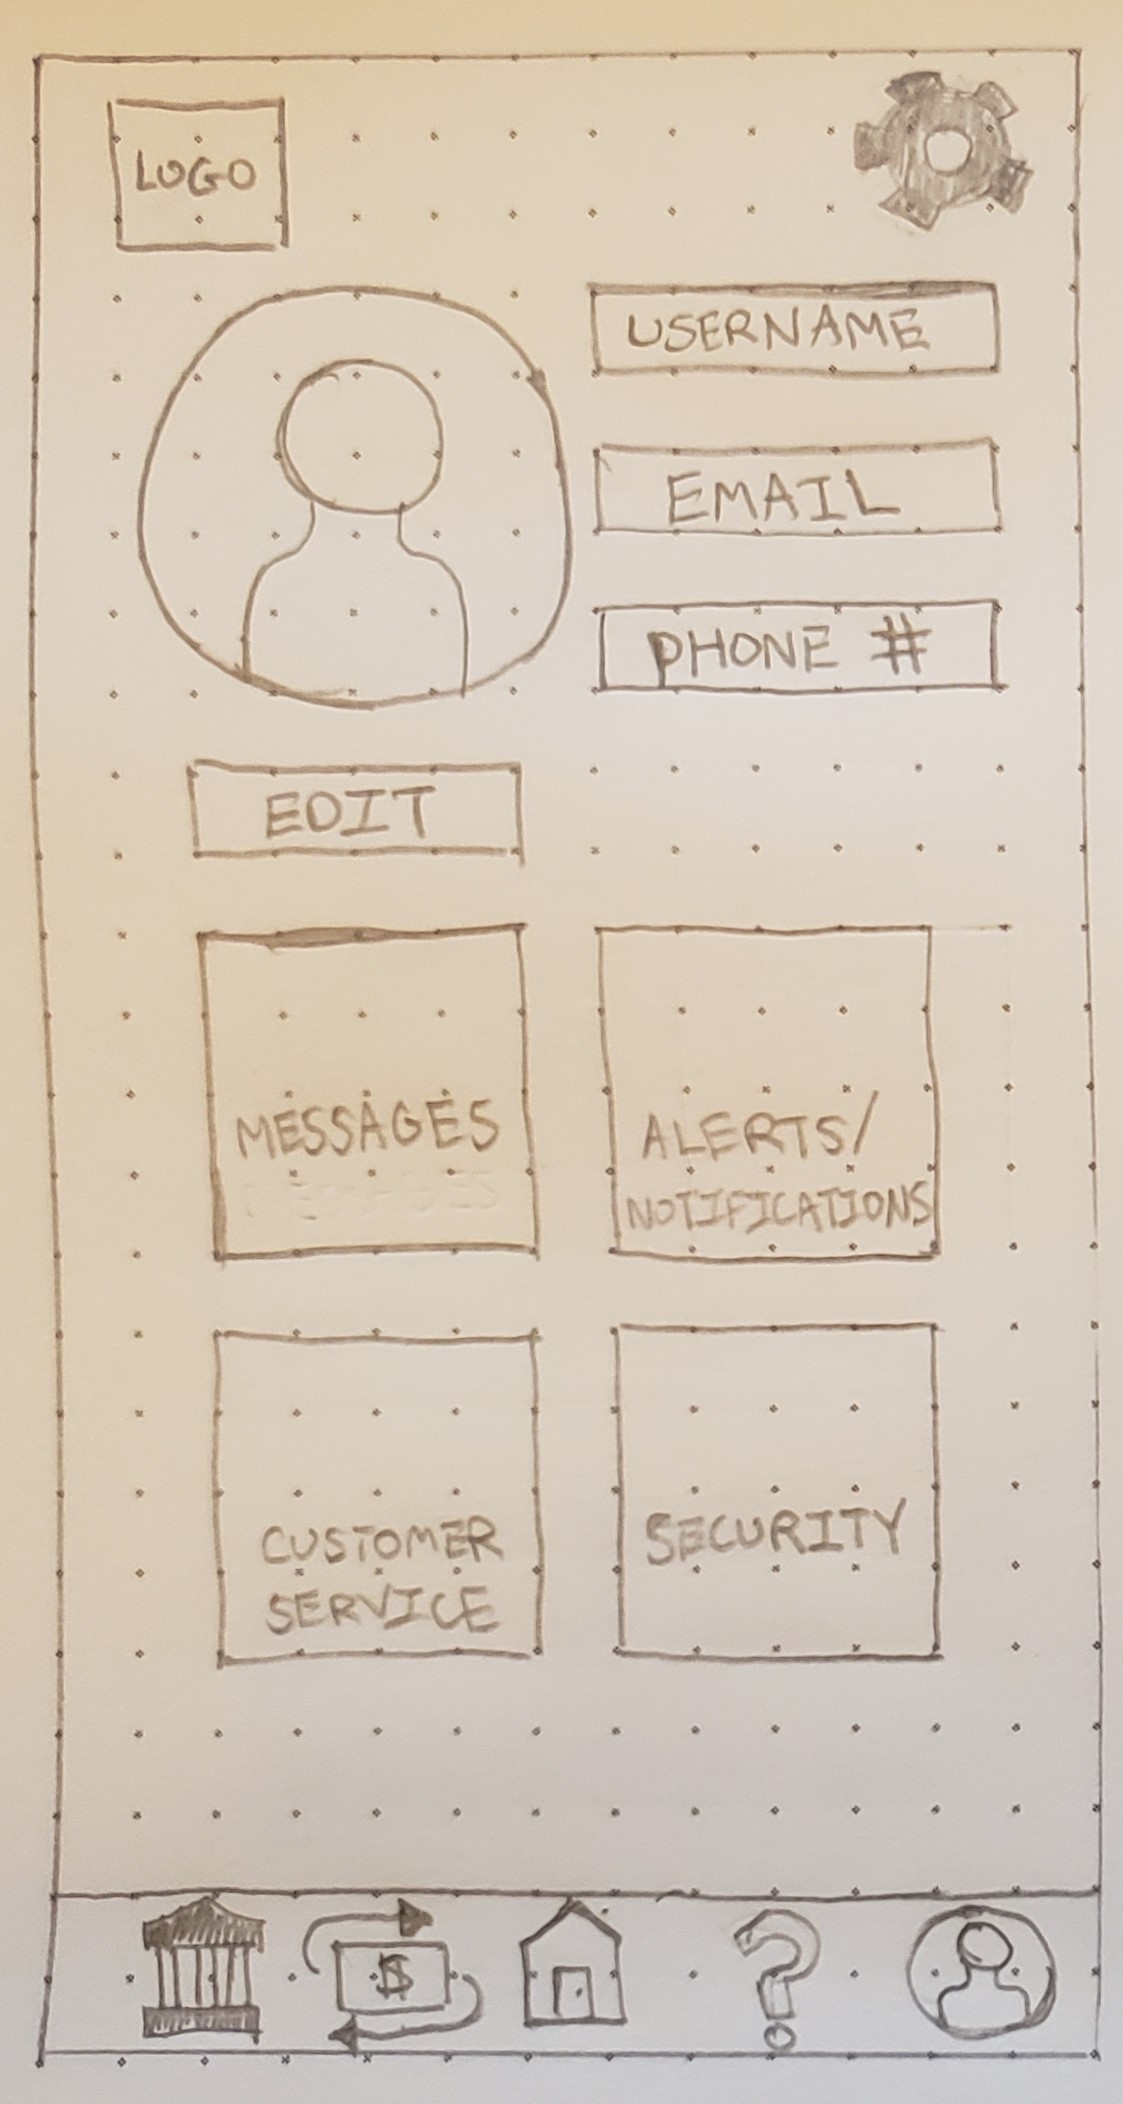 LOGO
USERNAME
EMAIL
PHONE #
EDIT
MESSAGES
ALERTS/
NOTIFICATIONS
CUSTOMER
SERVICE
SECURITY
$
?